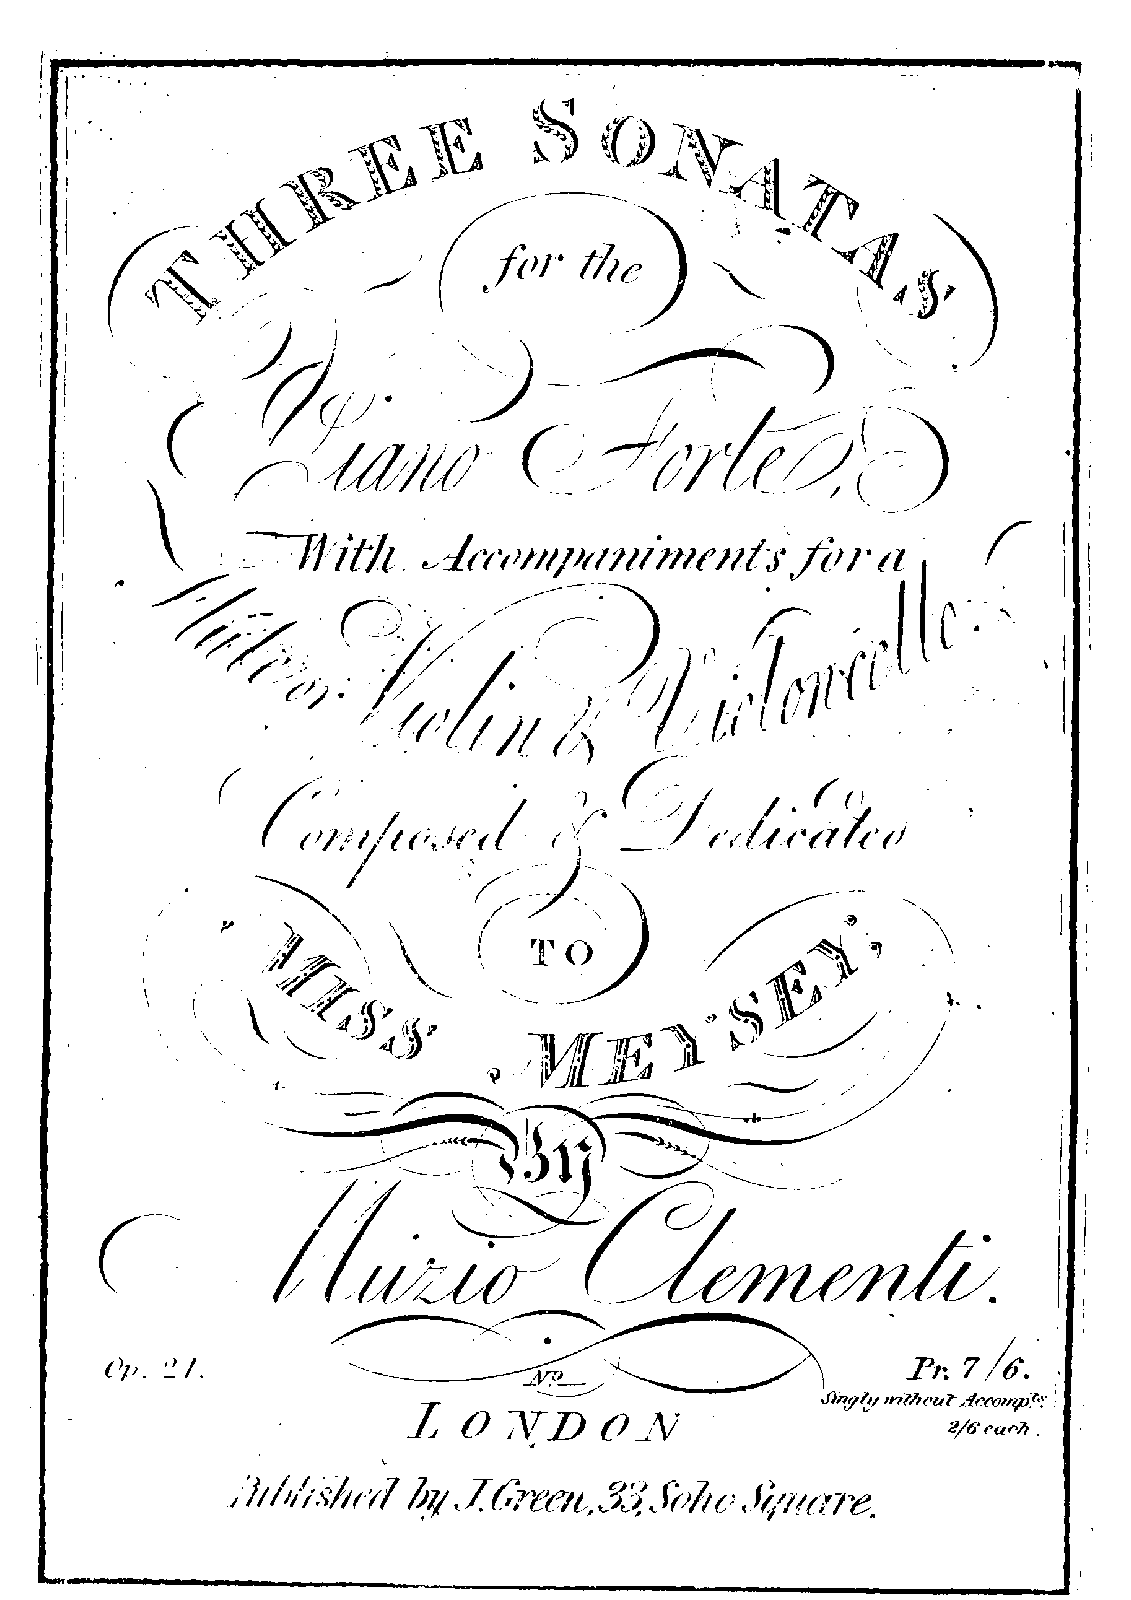 THREE SONATAS
for the
Piano Forte,
With Accompaniments for a
Flute or Violin & Violoncello.
Composed & Dedicated
TO
MISS MEYSEY;
By
Muzio Clementi.
Op. 21.
Pr. 7/6.
Singly without Accompts.
2/6 each.
No.
LONDON
Published by J. Green, 33, Soho Square.